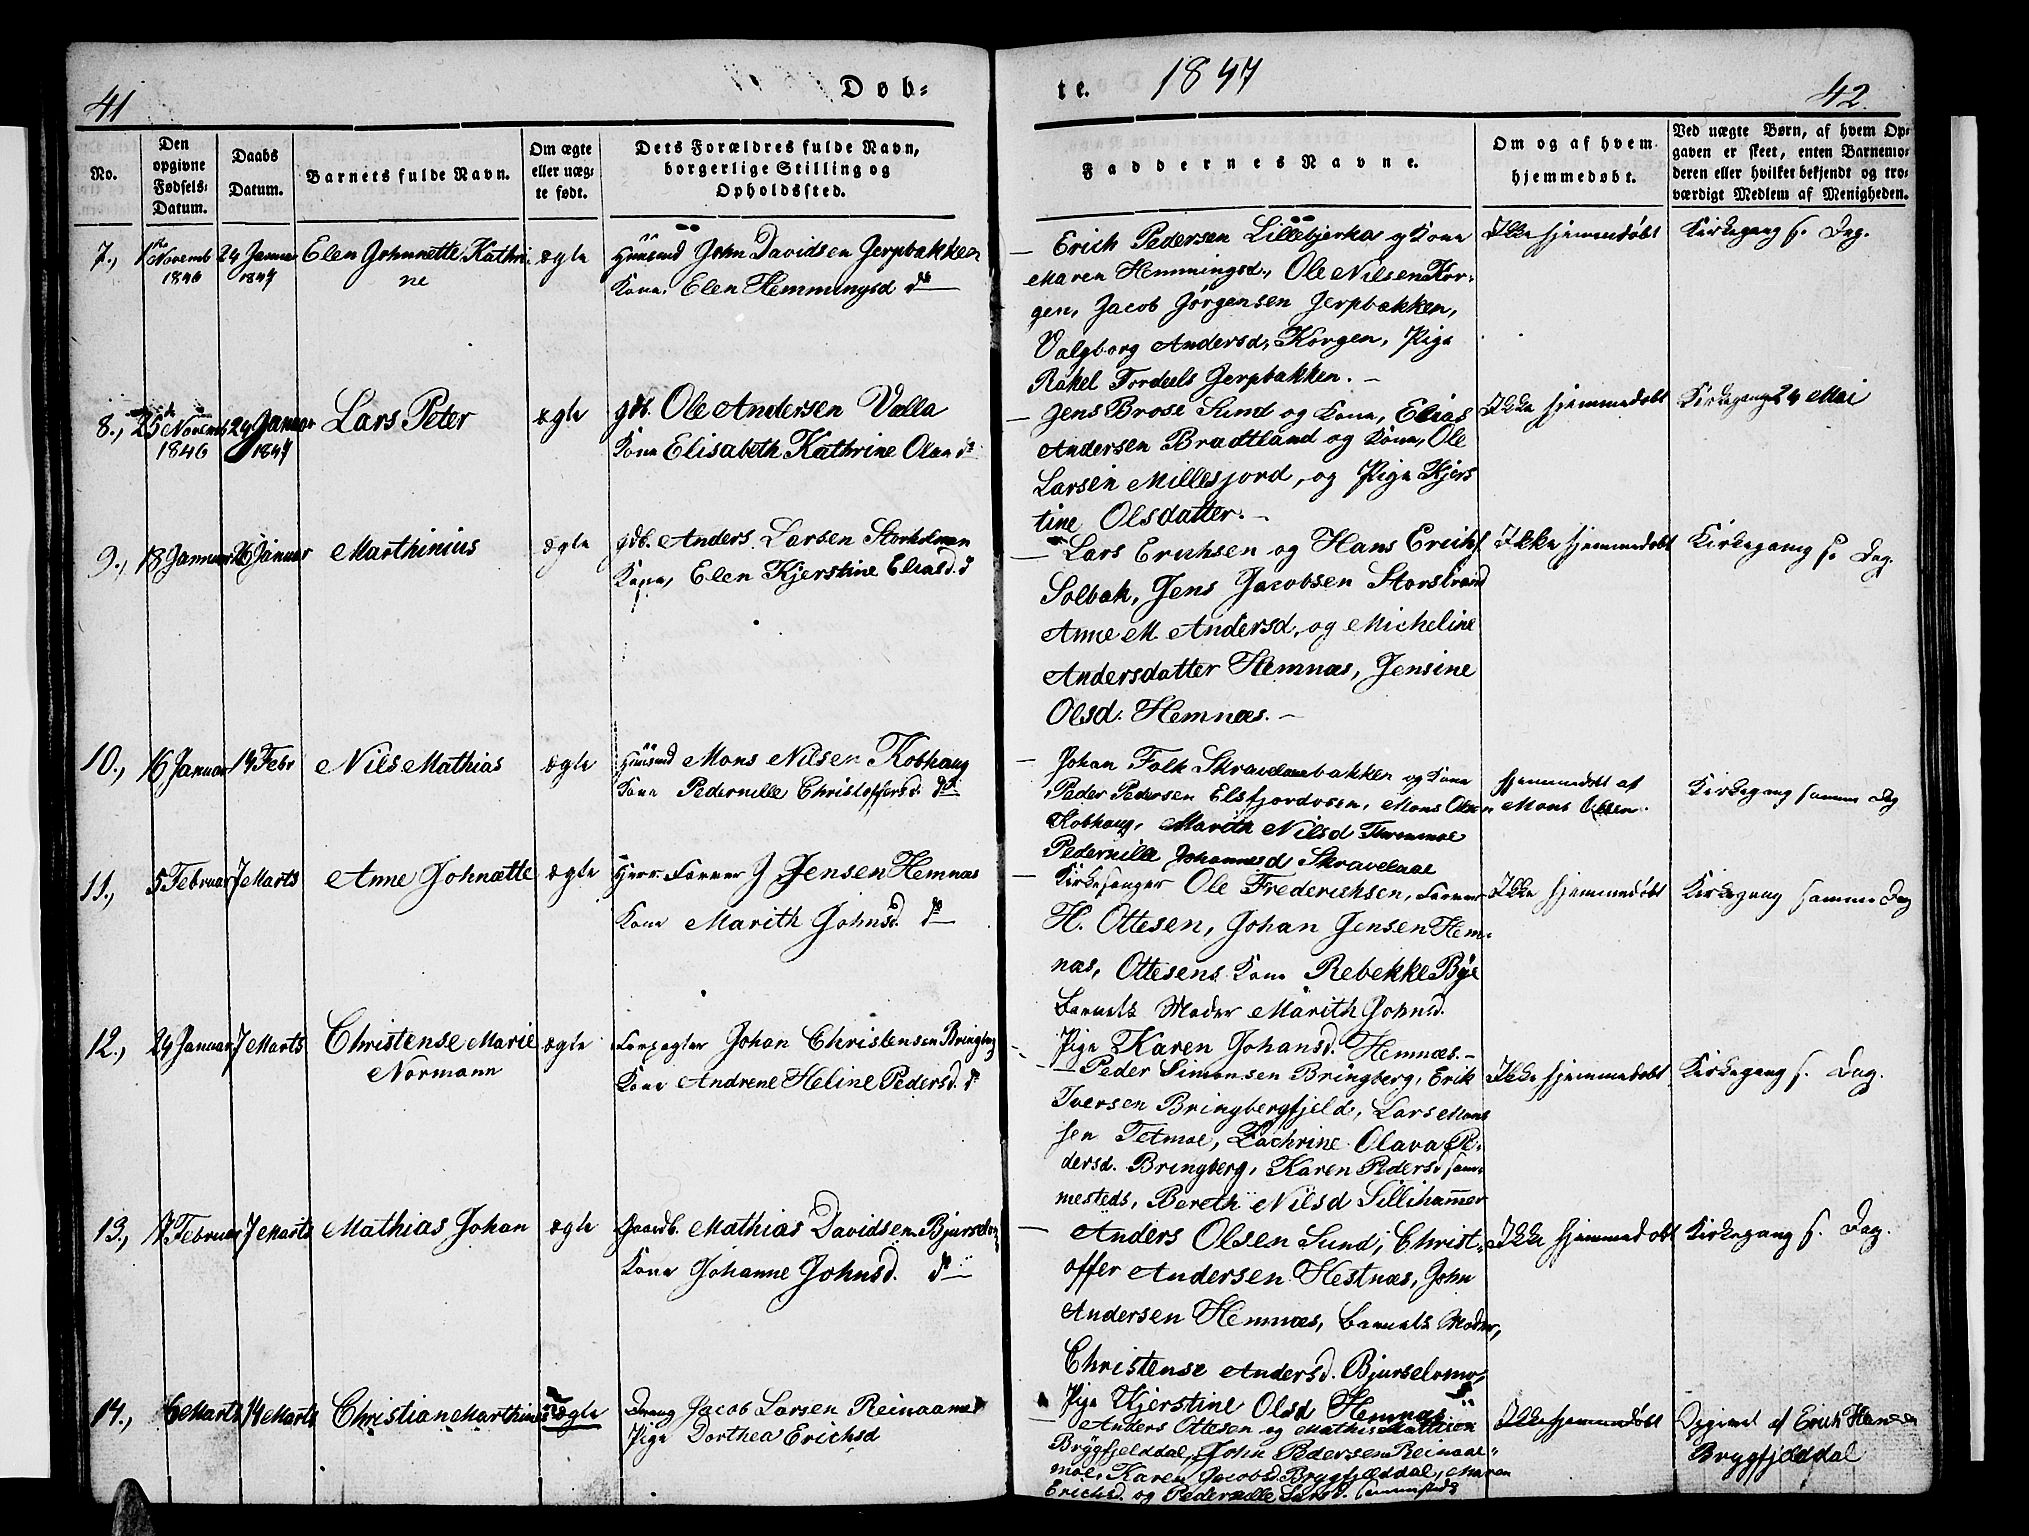 41
Døb-
te.
1847
42
No.
Den opgivne Fødsels-Datum.
Daabs Datum.
Barnets fulde Navn.
Om ægte eller uæg-te født.
Dets Forældres fulde Navn, borgerlige Stilling og Opholdssted.
Faddernes Navne.
Om og af hvem hjemmedøbt.
Ved uægte Børn, af hvem Op-gaven er skeet, enten Barnemo-deren eller hvilket bekjendt og tro-værdigt Medlem af Menigheden.
7., 1ste Novemb 1846 24 Januar 1847 Elen Johnette Kathri-ne ægte
Huusmd John Davidsen Jerpbakken
Kone, Elen Hemmingsd ds
– Erich Pedersen Lillebjerka og Kone
Maren Hemmingsd., Ole Nilsen Kor-
gen, Jacob Jørgensen Jerpbakken,
Valgborg Andersd, Korgen, Pige
Rakel Tordeels Jerpbakken. –
Ikke hjemmedøbt
Kirkegang s. Dag.
8., 25de Novemb 1846 24 Januar 1847 Lars Peter ægte
gdb. Ole Andersen Valla
Kone Elisabeth Kathrine Olava ds
– Jens Brose Sund og Kone, Elias
Andersen Bradtland og Kone, Ole
Larsen Millesjord, og Pige Kjers
tine Olsdatter. –
Ikke hjemmedøbt
Kirkegang 24 Mai
9., 18 Januar 26 Januar Marthinius ægte
gdb. Anders Larsen
Kone, Elen Kjerstine Eliasd. d
– Lars Erichsen og Hans Erichs
Solbak, Jens Jacobsen Storstrand
Anne M. Andersd, og Micheline
Andersdatter Hemnæs, Jensine
Olsd. Hemnæs. –
Ikke hjemmedøbt
Kirkegang s. Dag.
10., 16 Januar 14 Febr Nils Mathias ægte
Huusmd Mons Nilsen Kobhaug
Kone Pedernille Christoffersd. ds
– Johan Falk Skravelaaebakken og Kone
Peder Pedersen Elsfjordosen, Mons Olsen
Kobhaug, Marith Nilsd
Pedernille Johannesd Skravelaae
hjemmedøbt af
Mons Olsen.
Kirkegang samme Dag
11., 5 Februar 7 Marts Anne Johnætte ægte
Herr Farver J Jensen Hemnæs
Kone Marith Johnsd. ds
– Kirkesanger Ole Frederichsen, Farver
H. Ottesen, Johan Jensen Hem-
næs, Ottesens Kone Rebekke Bye
Barnets Moder Marith Johnsd.
Pige Karen Johansd. Hemnæs. –
Ikke hjemmedøbt
Kirkegang samme Dag
12., 24 Januar 7 Marts Christense Marie Normann ægte
Forpagter Johan Christensen Bringberg
Kone Andrene Heline Pedersd. d
– Peder Simonsen Bringberg, Erik
Iversen Bringbergfjeld, Lars Mons
sen Tetmoe, Zachrine Olava Pe-
dersd. Bringberg, Karen Pedersd sam-
mesteds, Bereth Nilsd Sillihammer
Ikke hjemmedøbt
Kirkegang s. Dag.
13., 7 Februar 7 Marts Mathias Johan ægte
Gaardb. Mathias Davidsen
Kone Johanne Johnsd. ds
– Anders Olsen Sund, Christ-
offer Andersen Hestnæs, John
Andersen Hemnæs, Barnets Moder,
Christense Andersd. Bjurselvmo,
Pige Kjerstine Olsd Hemnæs
Ikke hjemmedøbt
Kirkegang s. Dag.
14., 6 Marts 14 Marts Christian Marthines uægte
Dreng Jacob Larsen Reinaamoe
Pige Dorthea Erichsd
– Anders Ottesen og Mathis
Brygfjelddal, John Pedersen Reinaae-
moe, Karen Jacobsd Brygfjelddal, Maren
Erichsd. og Pedernille Larsd. sammesteds
Ikke hjemmedøbt
Opgivet af Erich Hansen
Brygfjelddal